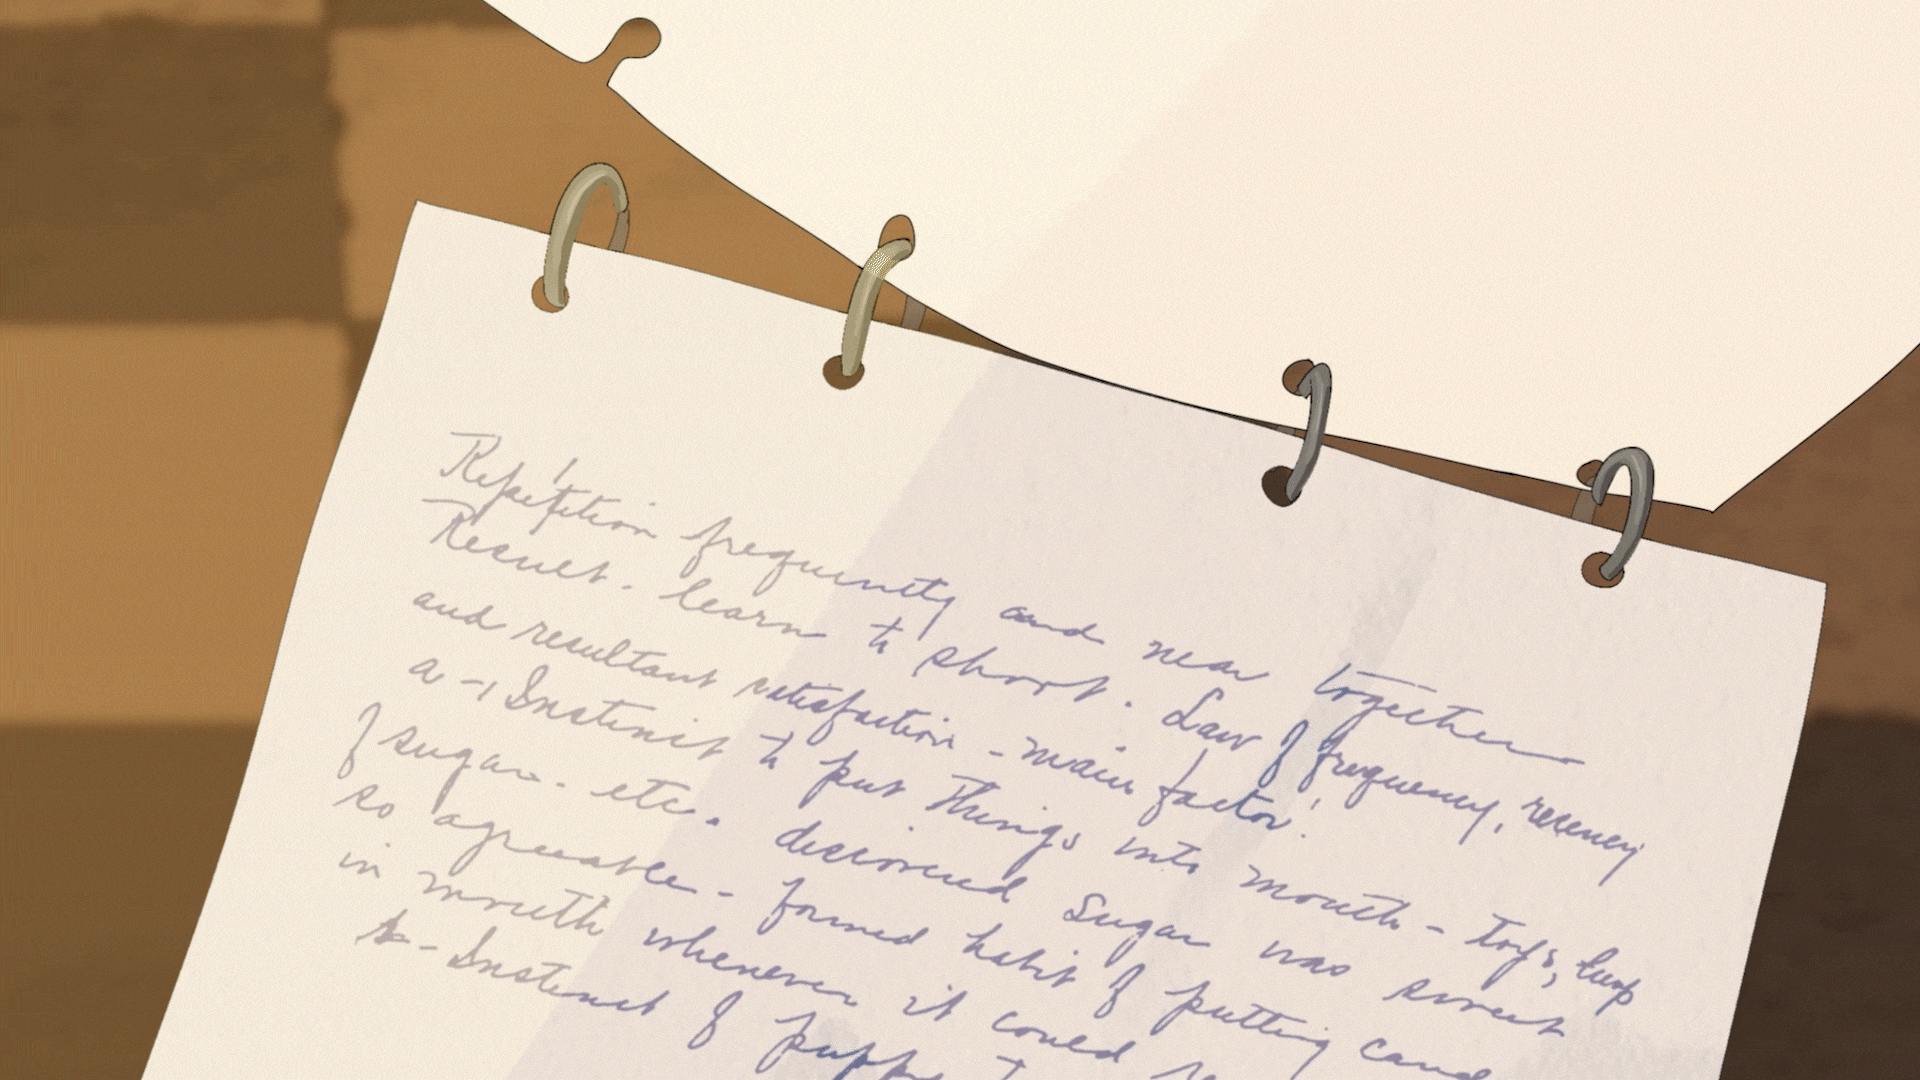 Repetition frequently and near together
Result. learn to short. Law of frequency, recency
and resultant satisfaction - main factor!
a - Instinct to put things into mouth - toys, lump
of sugar. etc. discovered Sugar was sweet
so agreeable - formed habit of putting cand
in mouth whenever it could
b - Instinct of puppy t